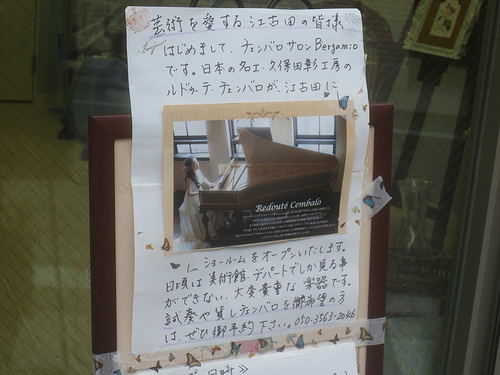 芸術を愛する江古田の皆様
はじめまして、チェンバロサロンBergamio
です。日本の名工・久保田彰工房の
ルドゥーテ・チェンバロが、江古田に
Redouté Cembalo
ショールームをオープンいたします。
日頃は美術館、デパートでしか見る事
ができない、大変貴重な楽器です。
試奏や貸しチェンバロを御希望の方
は、ぜひ御予約下さい。050-3563-2046
日時》